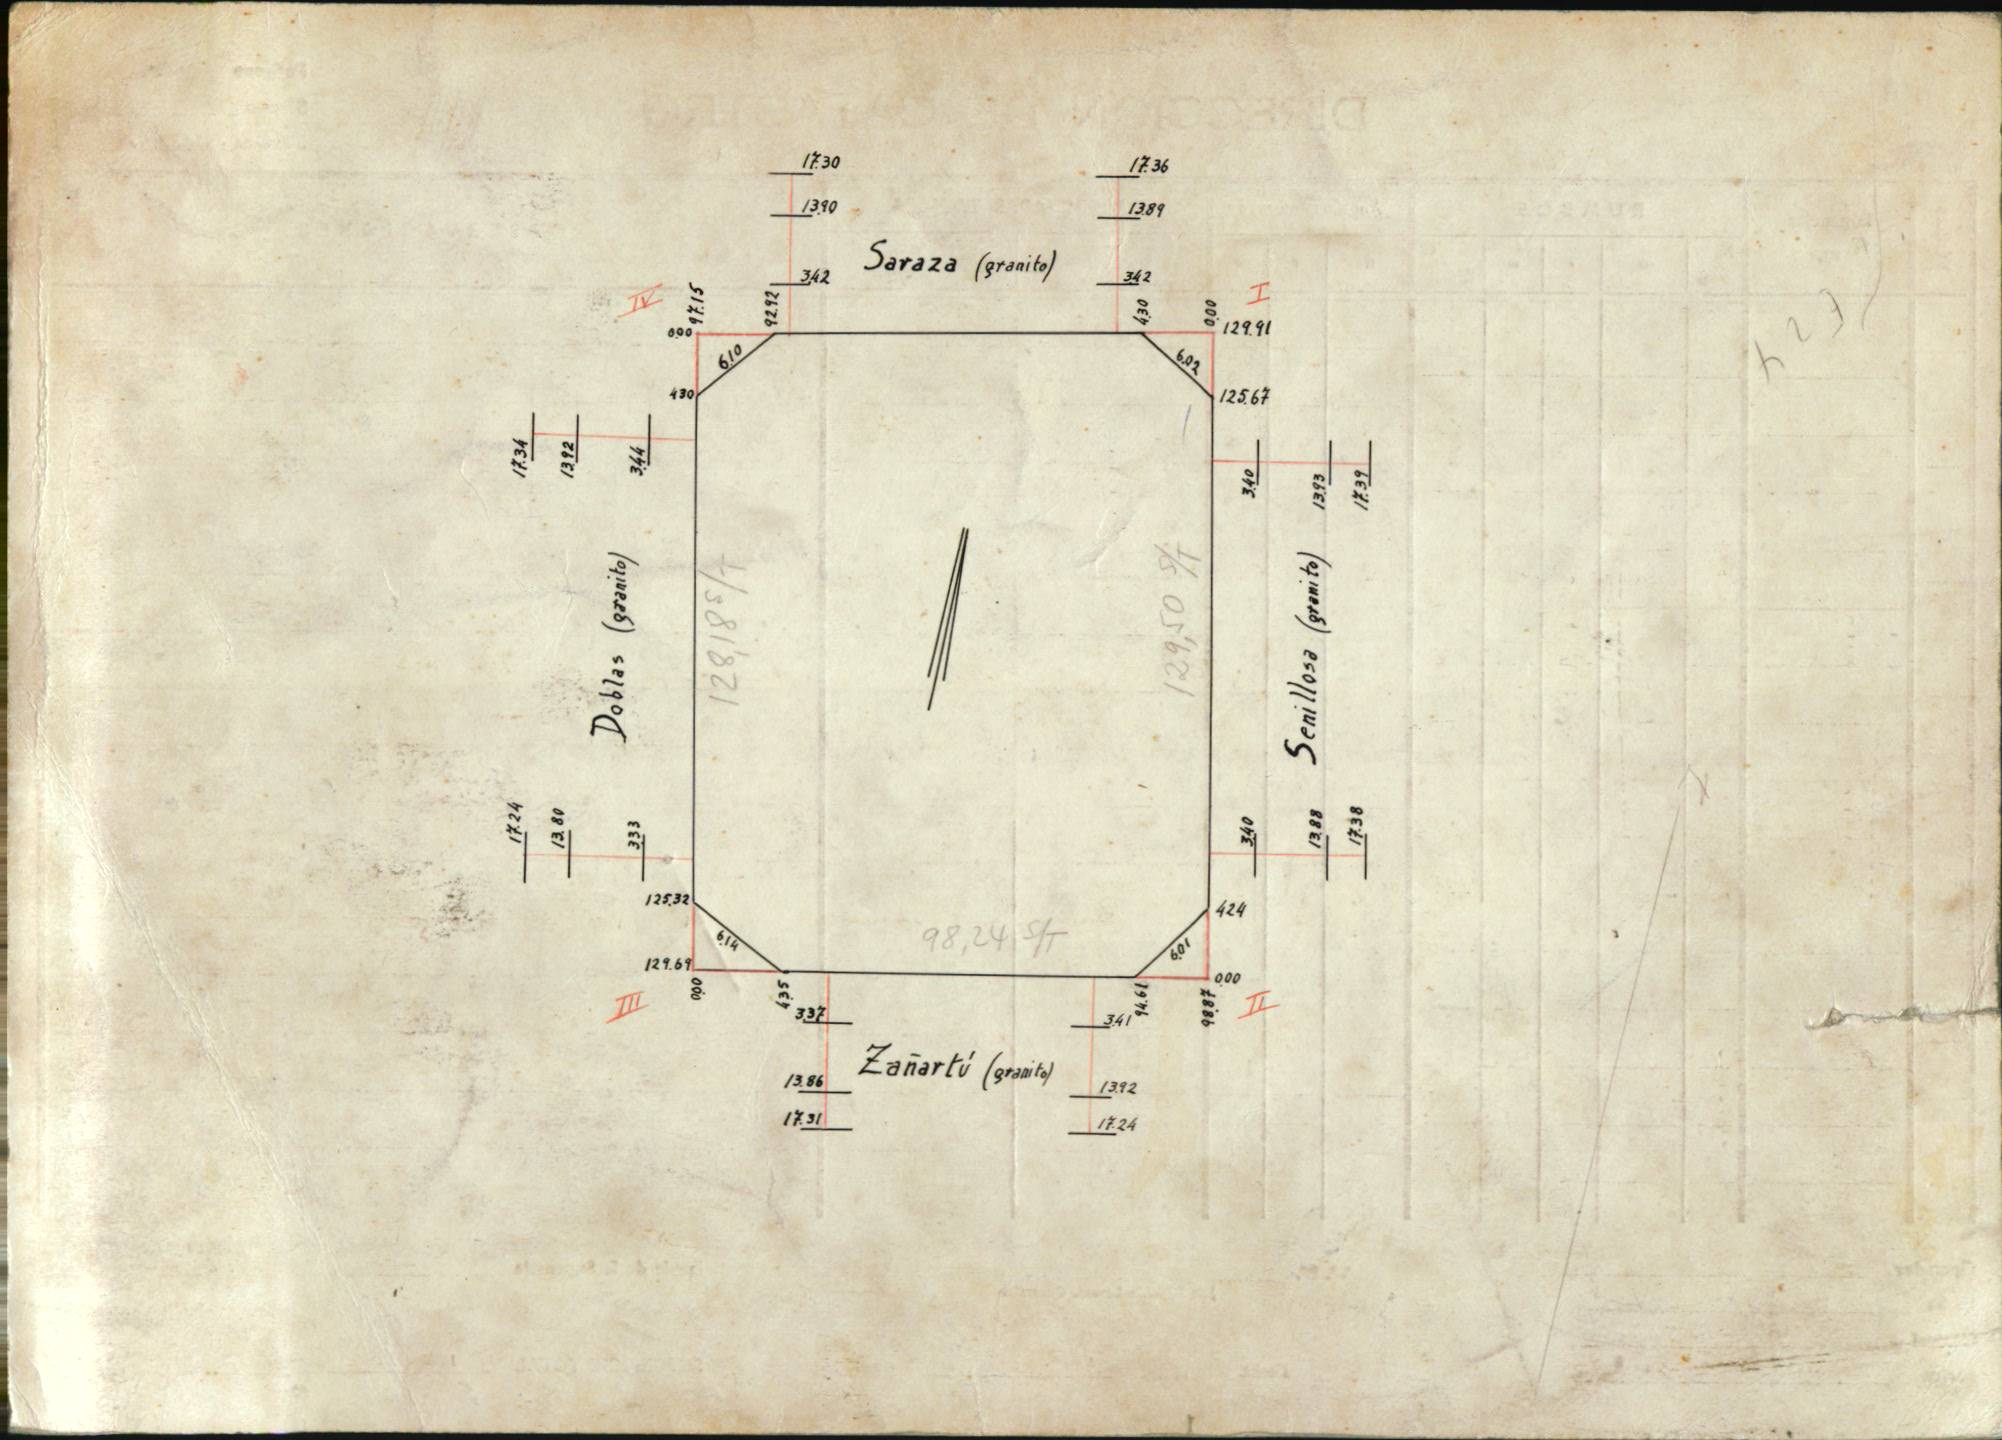 17.30
17.36
13.90
13.89
Saraza (granito)
3.42
3.42
IV
97.15
92.92
4.30
0.00
I
0.00
129.91
6.10
6.02
4.30
125.67
17.34
13.92
3.44
3.40
13.93
17.39
Doblas (granito)
128,18 S/T
129,50 S/T
Senillosa (granito)
17.24
13.80
3.33
3.40
13.88
17.38
125.32
4.24
6.14
98,24 S/T
6.01
129.69
0.00
III
0.00
4.35
94.61
98.87
II
3.37
3.41
Zañartú (granito)
13.86
13.92
17.31
17.24